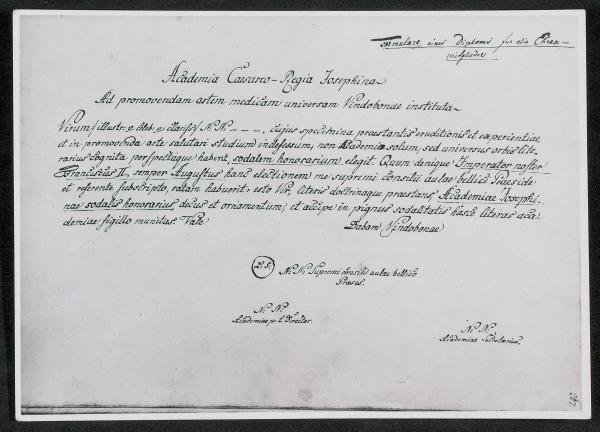 Formulare eines Diploms für die Ehren-
mitglieder
Academia Caesareo-Regia Josephina
Ad promovendam artem medicam universam Vindobonae instituta
Virum/illustr. v. celeb. v. clariss/ N. N. - - -, cujus specimina praestantis eruditionis et experientiae,
et in promovenda arte salutari studium indefessum, non Academia solum, sed universus orbis lite-
rarius cognita perspectaque habent, sodalem honorarium elegit. Quum denique Imperator noster
Franciscus II, semper Augustus hanc electionem me supremi consilii aulae bellici Praeside
et referente subscripto, ratam habuerit: esto Vir, literis doctrinaque praestans, Academiae Josephi-
nae sodalis honorarius, decus et ornamentum; et accipe in pignus sodalitatis hasce literas aca-
demiae sigillo munitas. Vale
Dabam Vindobonae
L. S.
N. N. Supremi consilii aulae bellici
Praeses.
N. N.
Academiae p. t. Director.
N. N.
Academiae Secretarius.